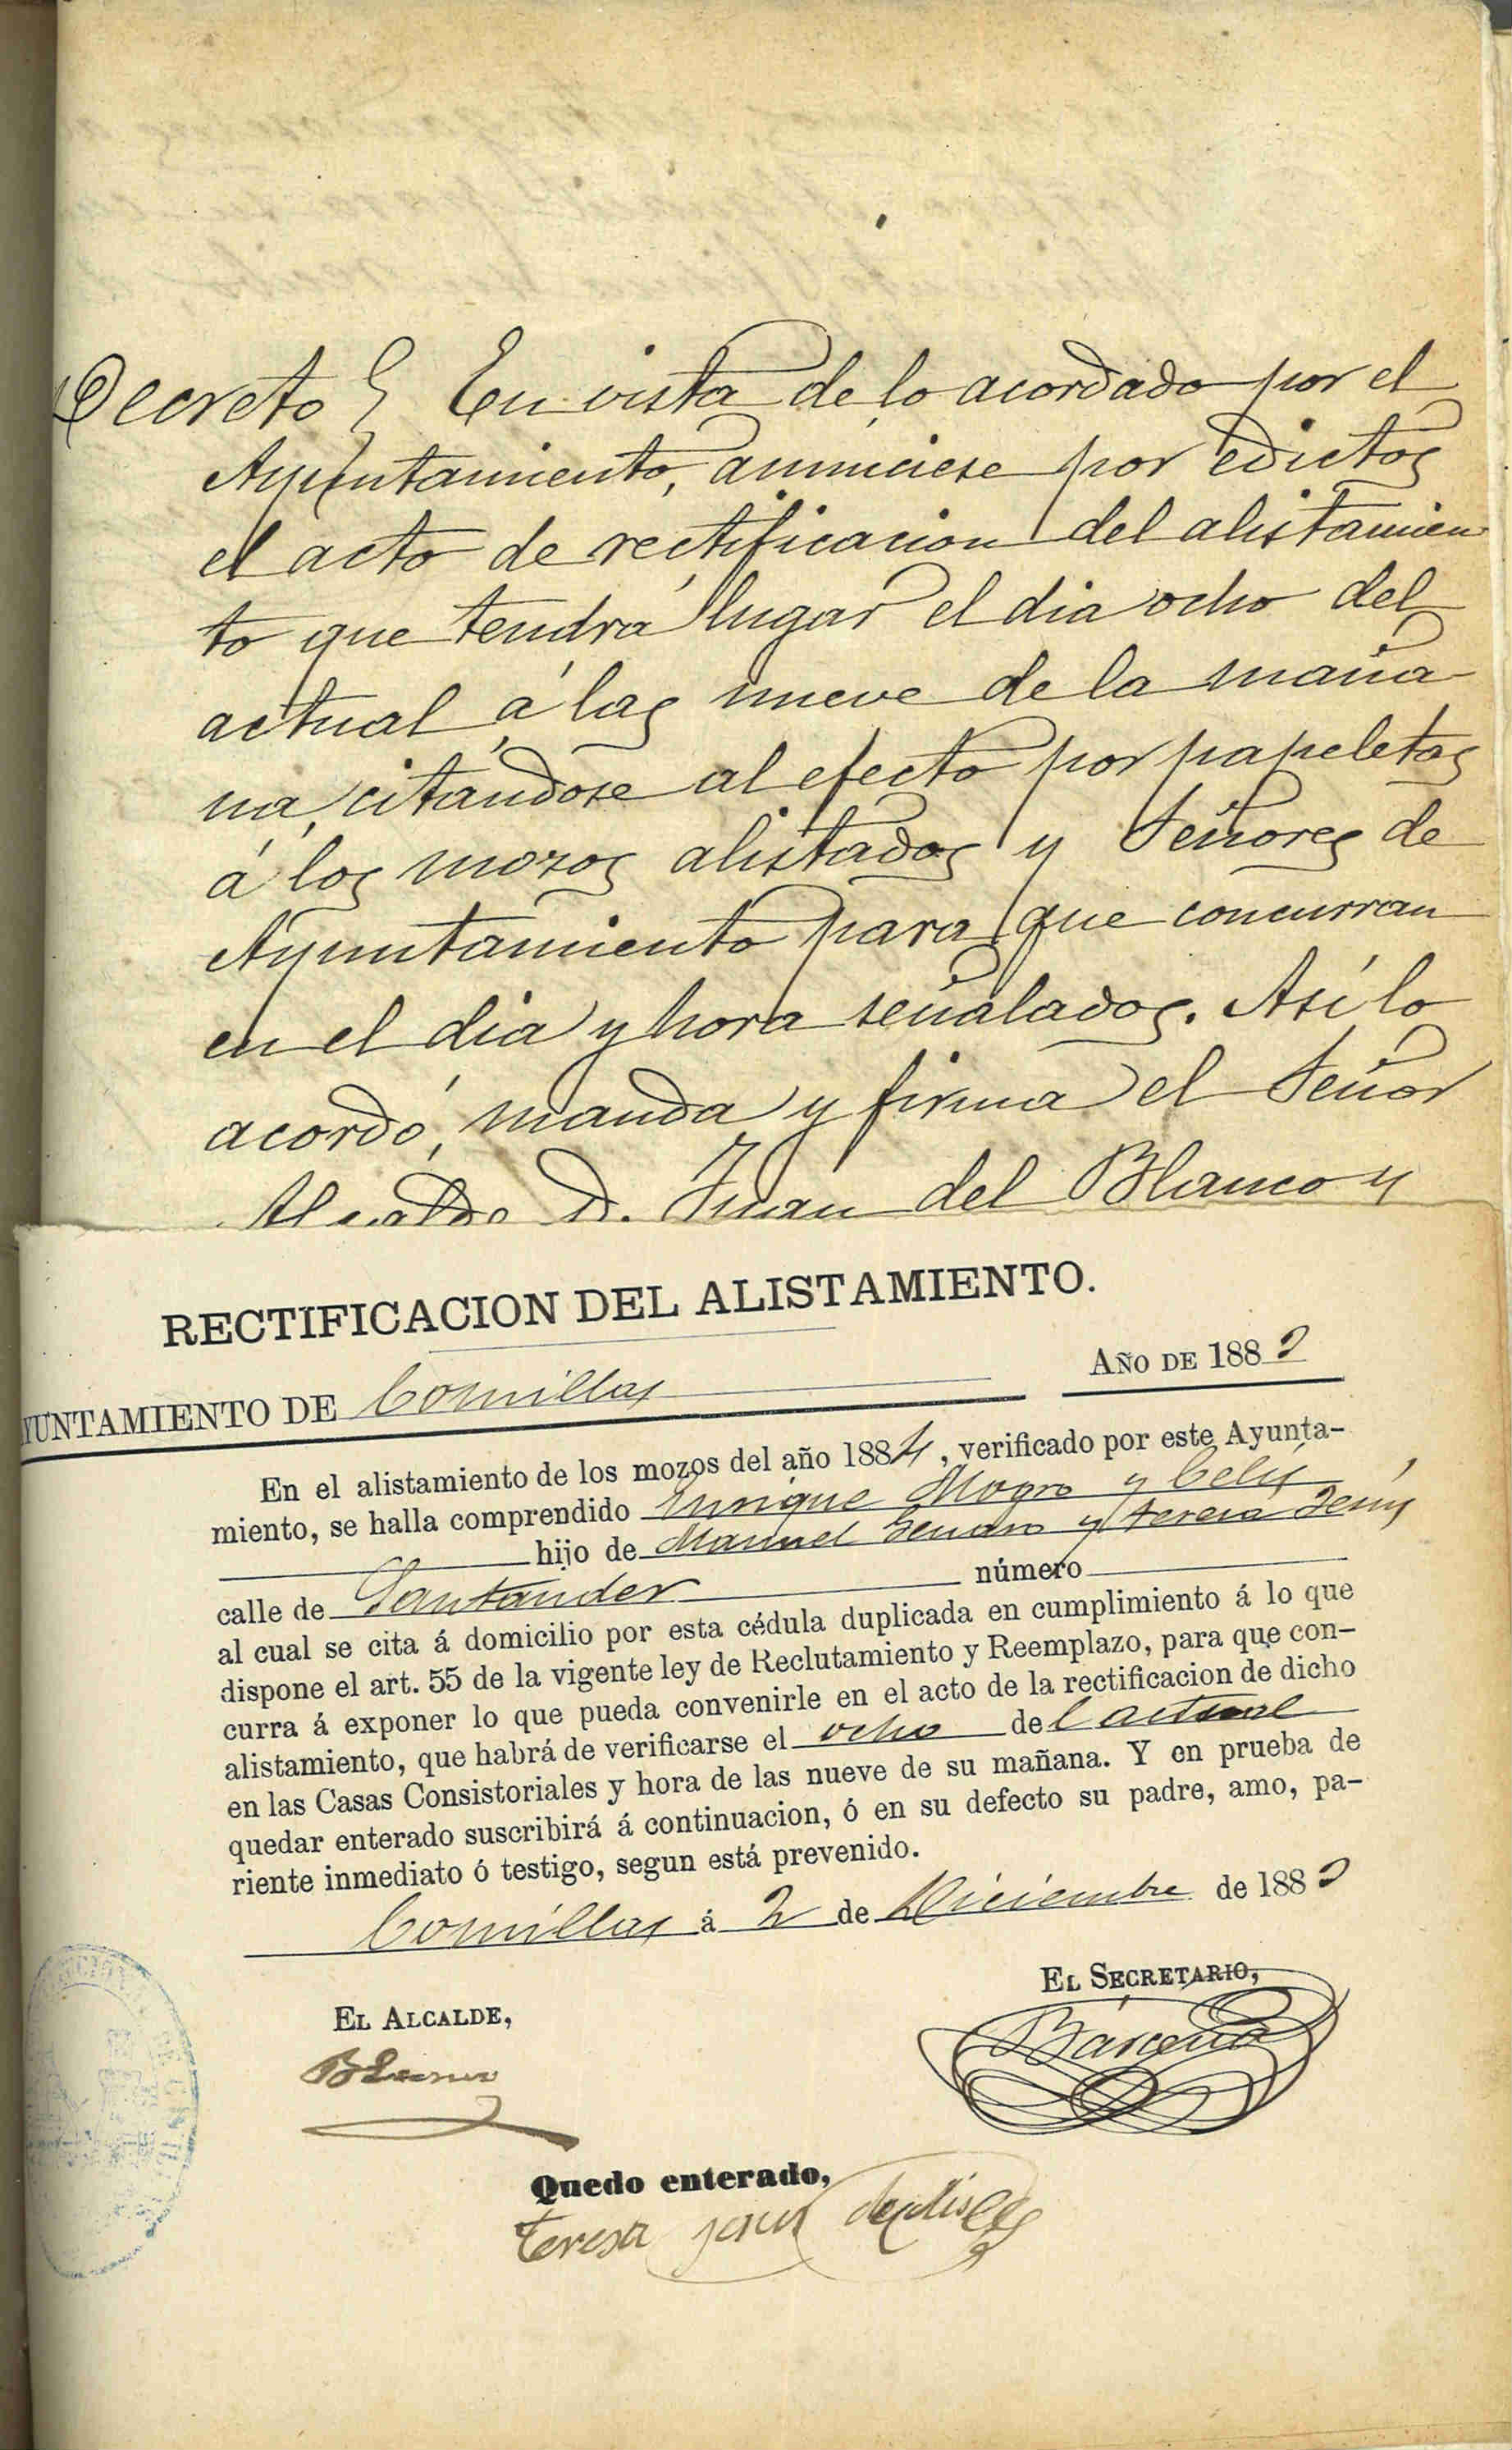 Decreto } En vista de lo acordado por el
Ayuntamiento, anunciese por edictos
el acto de rectificacion del alistamien
to que tendrá lugar el dia ocho del
actual á las nueve de la maña
na, citándose al efecto por papeletas
á los mozos alistados y Señores de
Ayuntamiento para que concurran
en el dia y hora señalados. Así lo
acordó, manda y firma el Señor
Alcalde D. Juan del Blanco y
RECTIFICACION DEL ALISTAMIENTO.
AÑO DE 188
YUNTAMIENTO DE Comillas
En el alistamiento de los mozos del año 1884, verificado por este Ayunta-
miento, se halla comprendido Enrique Mogro y Celis
hijo de Manuel Genaro y Teresa Jesús
calle de Santander número
al cual se cita á domicilio por esta cédula duplicada en cumplimiento á lo que
dispone el art. 55 de la vigente ley de Reclutamiento y Reemplazo, para que con-
curra á exponer lo que pueda convenirle en el acto de la rectificacion de dicho
alistamiento, que habrá de verificarse el ocho del actual
en las Casas Consistoriales y hora de las nueve de su mañana. Y en prueba de
quedar enterado suscribirá á continuacion, ó en su defecto su padre, amo, pa-
riente inmediato ó testigo, segun está prevenido.
Comillas á 2 de Diciembre de 188
EL SECRETARIO,
EL ALCALDE,
Bárcena
Blanco
Quedo enterado,
teresa jesus deselis